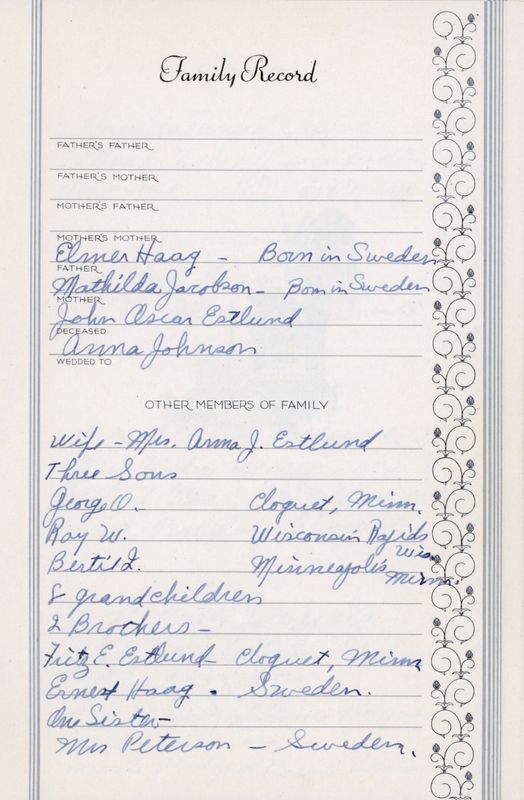 Family Record
FATHER'S FATHER
FATHER'S MOTHER
MOTHER'S FATHER
MOTHER'S MOTHER
Elmer Haag - Born in Sweden
FATHER
Mathilda Jacobson - Born in Sweden
MOTHER
John Oscar Estlund
DECEASED
Anna Johnson
WEDDED TO
OTHER MEMBERS OF FAMILY
Wife - Mrs. Anna J. Estlund
Three Sons
George O. - Cloquet, Minn.
Ray W. Wisconsin Rapids Wis.
Bertil I. Minneapolis Minn.
8 grandchildren
2 Brothers -
Fritz E. Estlund - Cloquet, Minn
Ernest Haag. Sweden.
One Sister -
Mrs Peterson - Sweden.